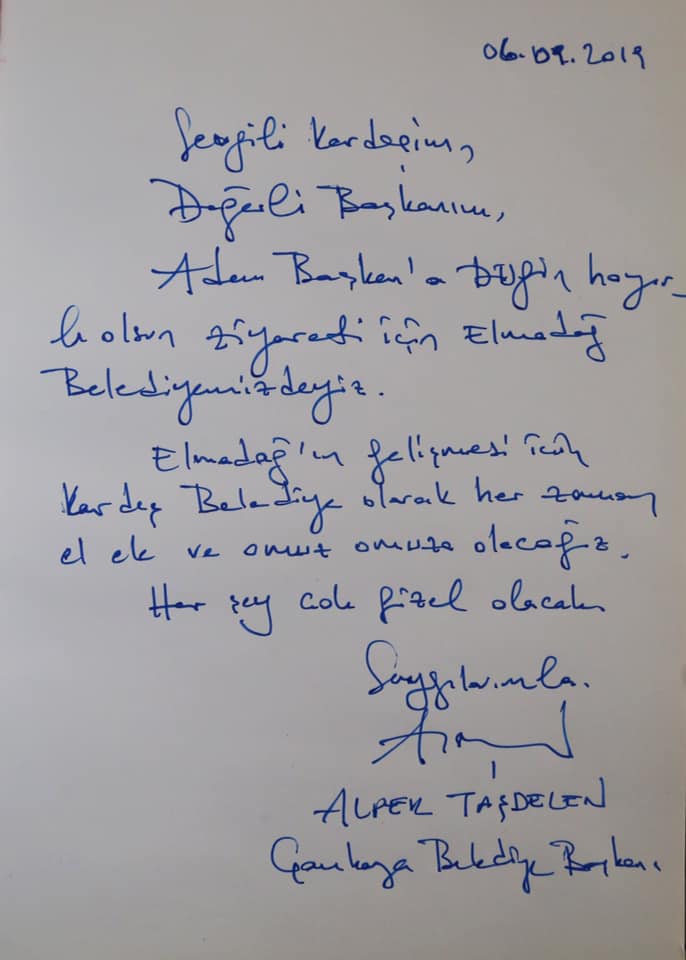 06.09.2019
Sevgili Kardeşim,
Değerli Başkanım,
Adem Başkan'a bugün hayır_
lı olsun ziyareti için Elmadağ
Belediyemizdeyiz.
Elmadağ'ın gelişmesi için
Kardeş Belediye olarak her zaman
el ele ve omuz omuza olacağız.
Her şey çok güzel olacak
Saygılarımla.
ALPER TAŞDELEN
Çankaya Belediye Başkanı